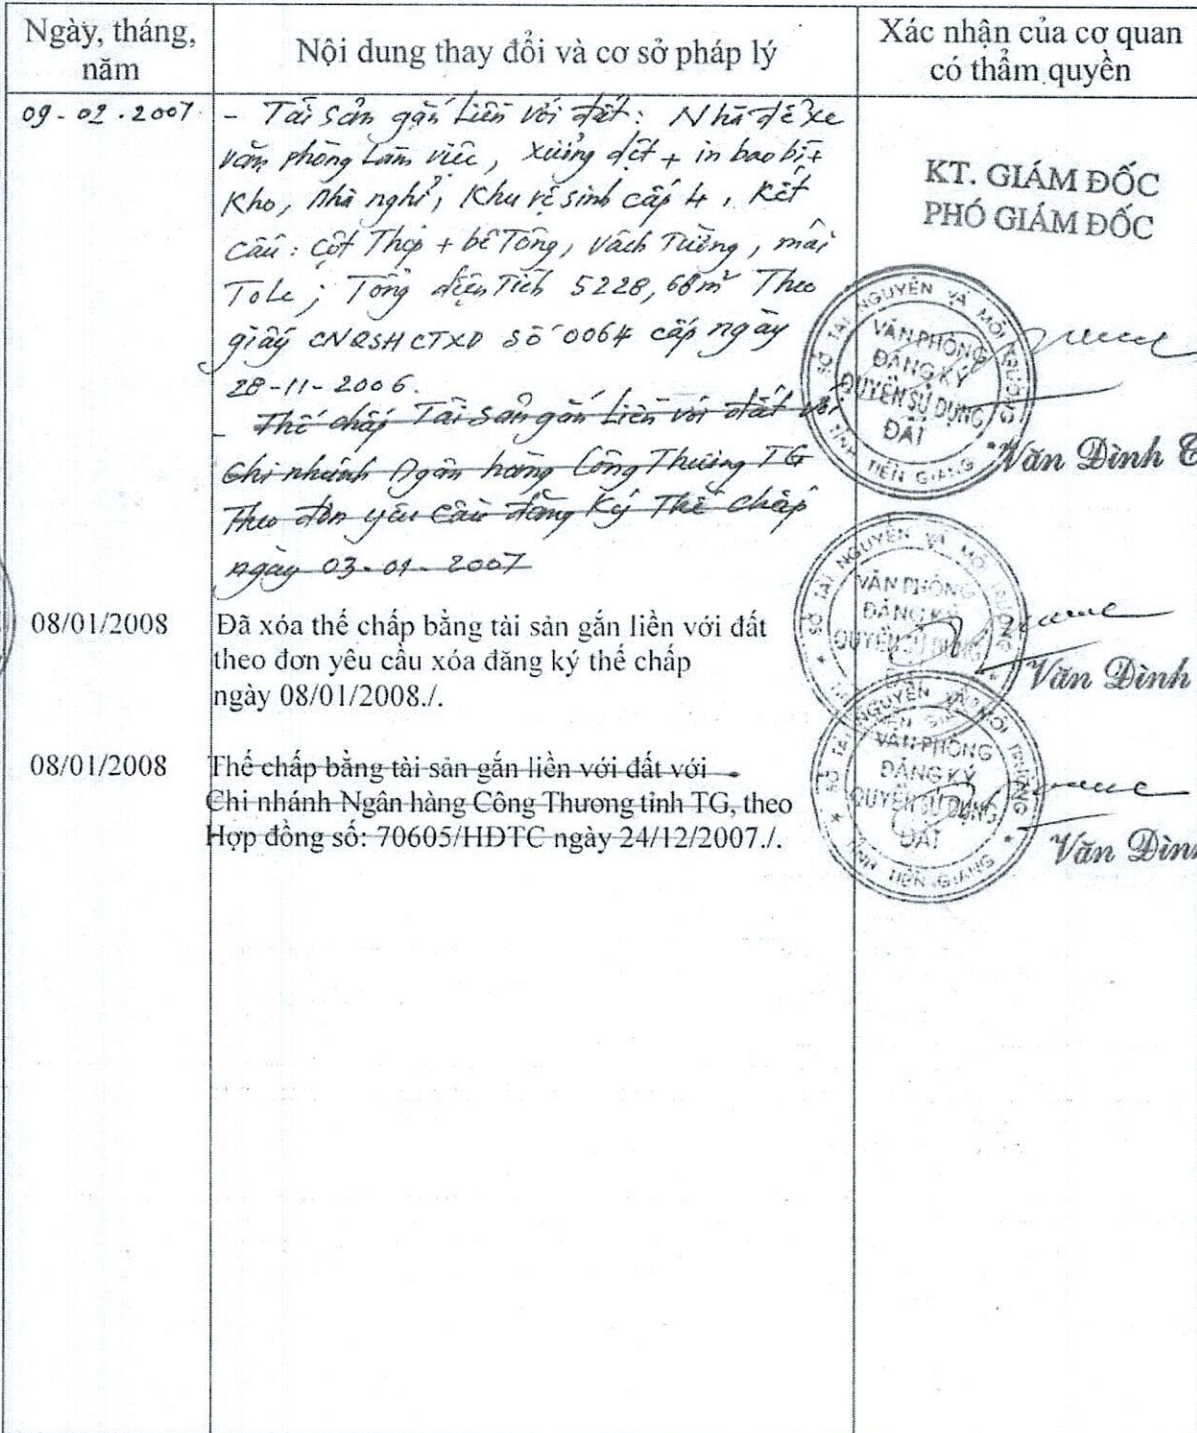 Ngày, tháng,
năm
Nội dung thay đổi và cơ sở pháp lý
Xác nhận của cơ quan
có thẩm quyền
09-02-2007
- Tài sản gắn liền với đất: Nhà để xe
văn phòng làm việc, xưởng dệt + in bao bì +
kho, nhà nghỉ, khu vệ sinh cấp 4, kết
cấu: cột thép + bê tông, vách tường, mái
Tole; Tổng diện tích 5228,68m² Theo
giấy CNQSHCTXD số 0064 cấp ngày
28-11-2006.
- Thế chấp Tài sản gắn liền với đất với
Chi nhánh Ngân hàng Công Thương TG
Theo đơn yêu cầu đăng ký thế chấp
ngày 03-01-2007
KT. GIÁM ĐỐC
PHÓ GIÁM ĐỐC
SỞ TÀI NGUYÊN VÀ MÔI TRƯỜNG
VĂN PHÒNG
ĐĂNG KÝ
QUYỀN SỬ DỤNG
ĐẤT
TỈNH TIỀN GIANG
Văn Đình
08/01/2008
Đã xóa thế chấp bằng tài sản gắn liền với đất
theo đơn yêu cầu xóa đăng ký thế chấp
ngày 08/01/2008./.
SỞ TÀI NGUYÊN VÀ MÔI TRƯỜNG
VĂN PHÒNG
ĐĂNG KÝ
QUYỀN SỬ DỤNG
Văn Đình
08/01/2008
Thế chấp bằng tài sản gắn liền với đất với
Chi nhánh Ngân hàng Công Thương tỉnh TG, theo
Hợp đồng số: 70605/HĐTC ngày 24/12/2007./.
SỞ TÀI NGUYÊN VÀ MÔI TRƯỜNG
VĂN PHÒNG
ĐĂNG KÝ
QUYỀN SỬ DỤNG
ĐẤT
TỈNH TIỀN GIANG
Văn Đình